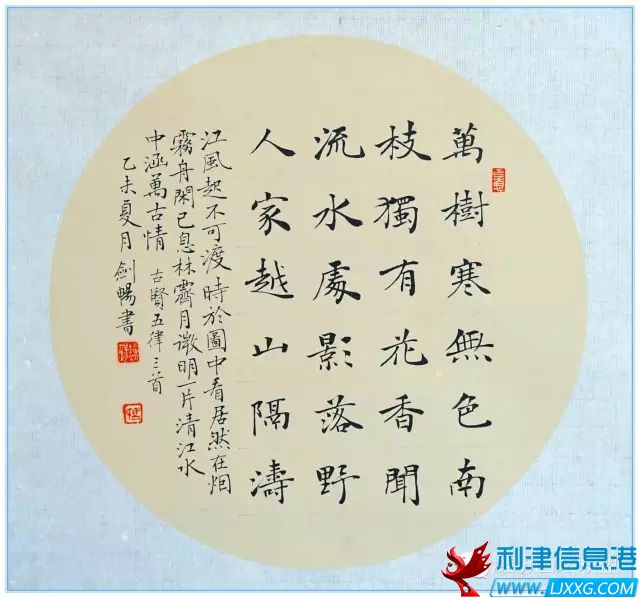 萬樹寒無色南
枝獨有花香聞
流水處影落野
人家越山隔濤
江風起不可渡時於圖中看居然在烟
霧舟閑已息林霽月澂明一片清江水
中涵萬古情 古賢五律三首
乙未夏月劍暢書
利津信息港
www.LJXXG.COM